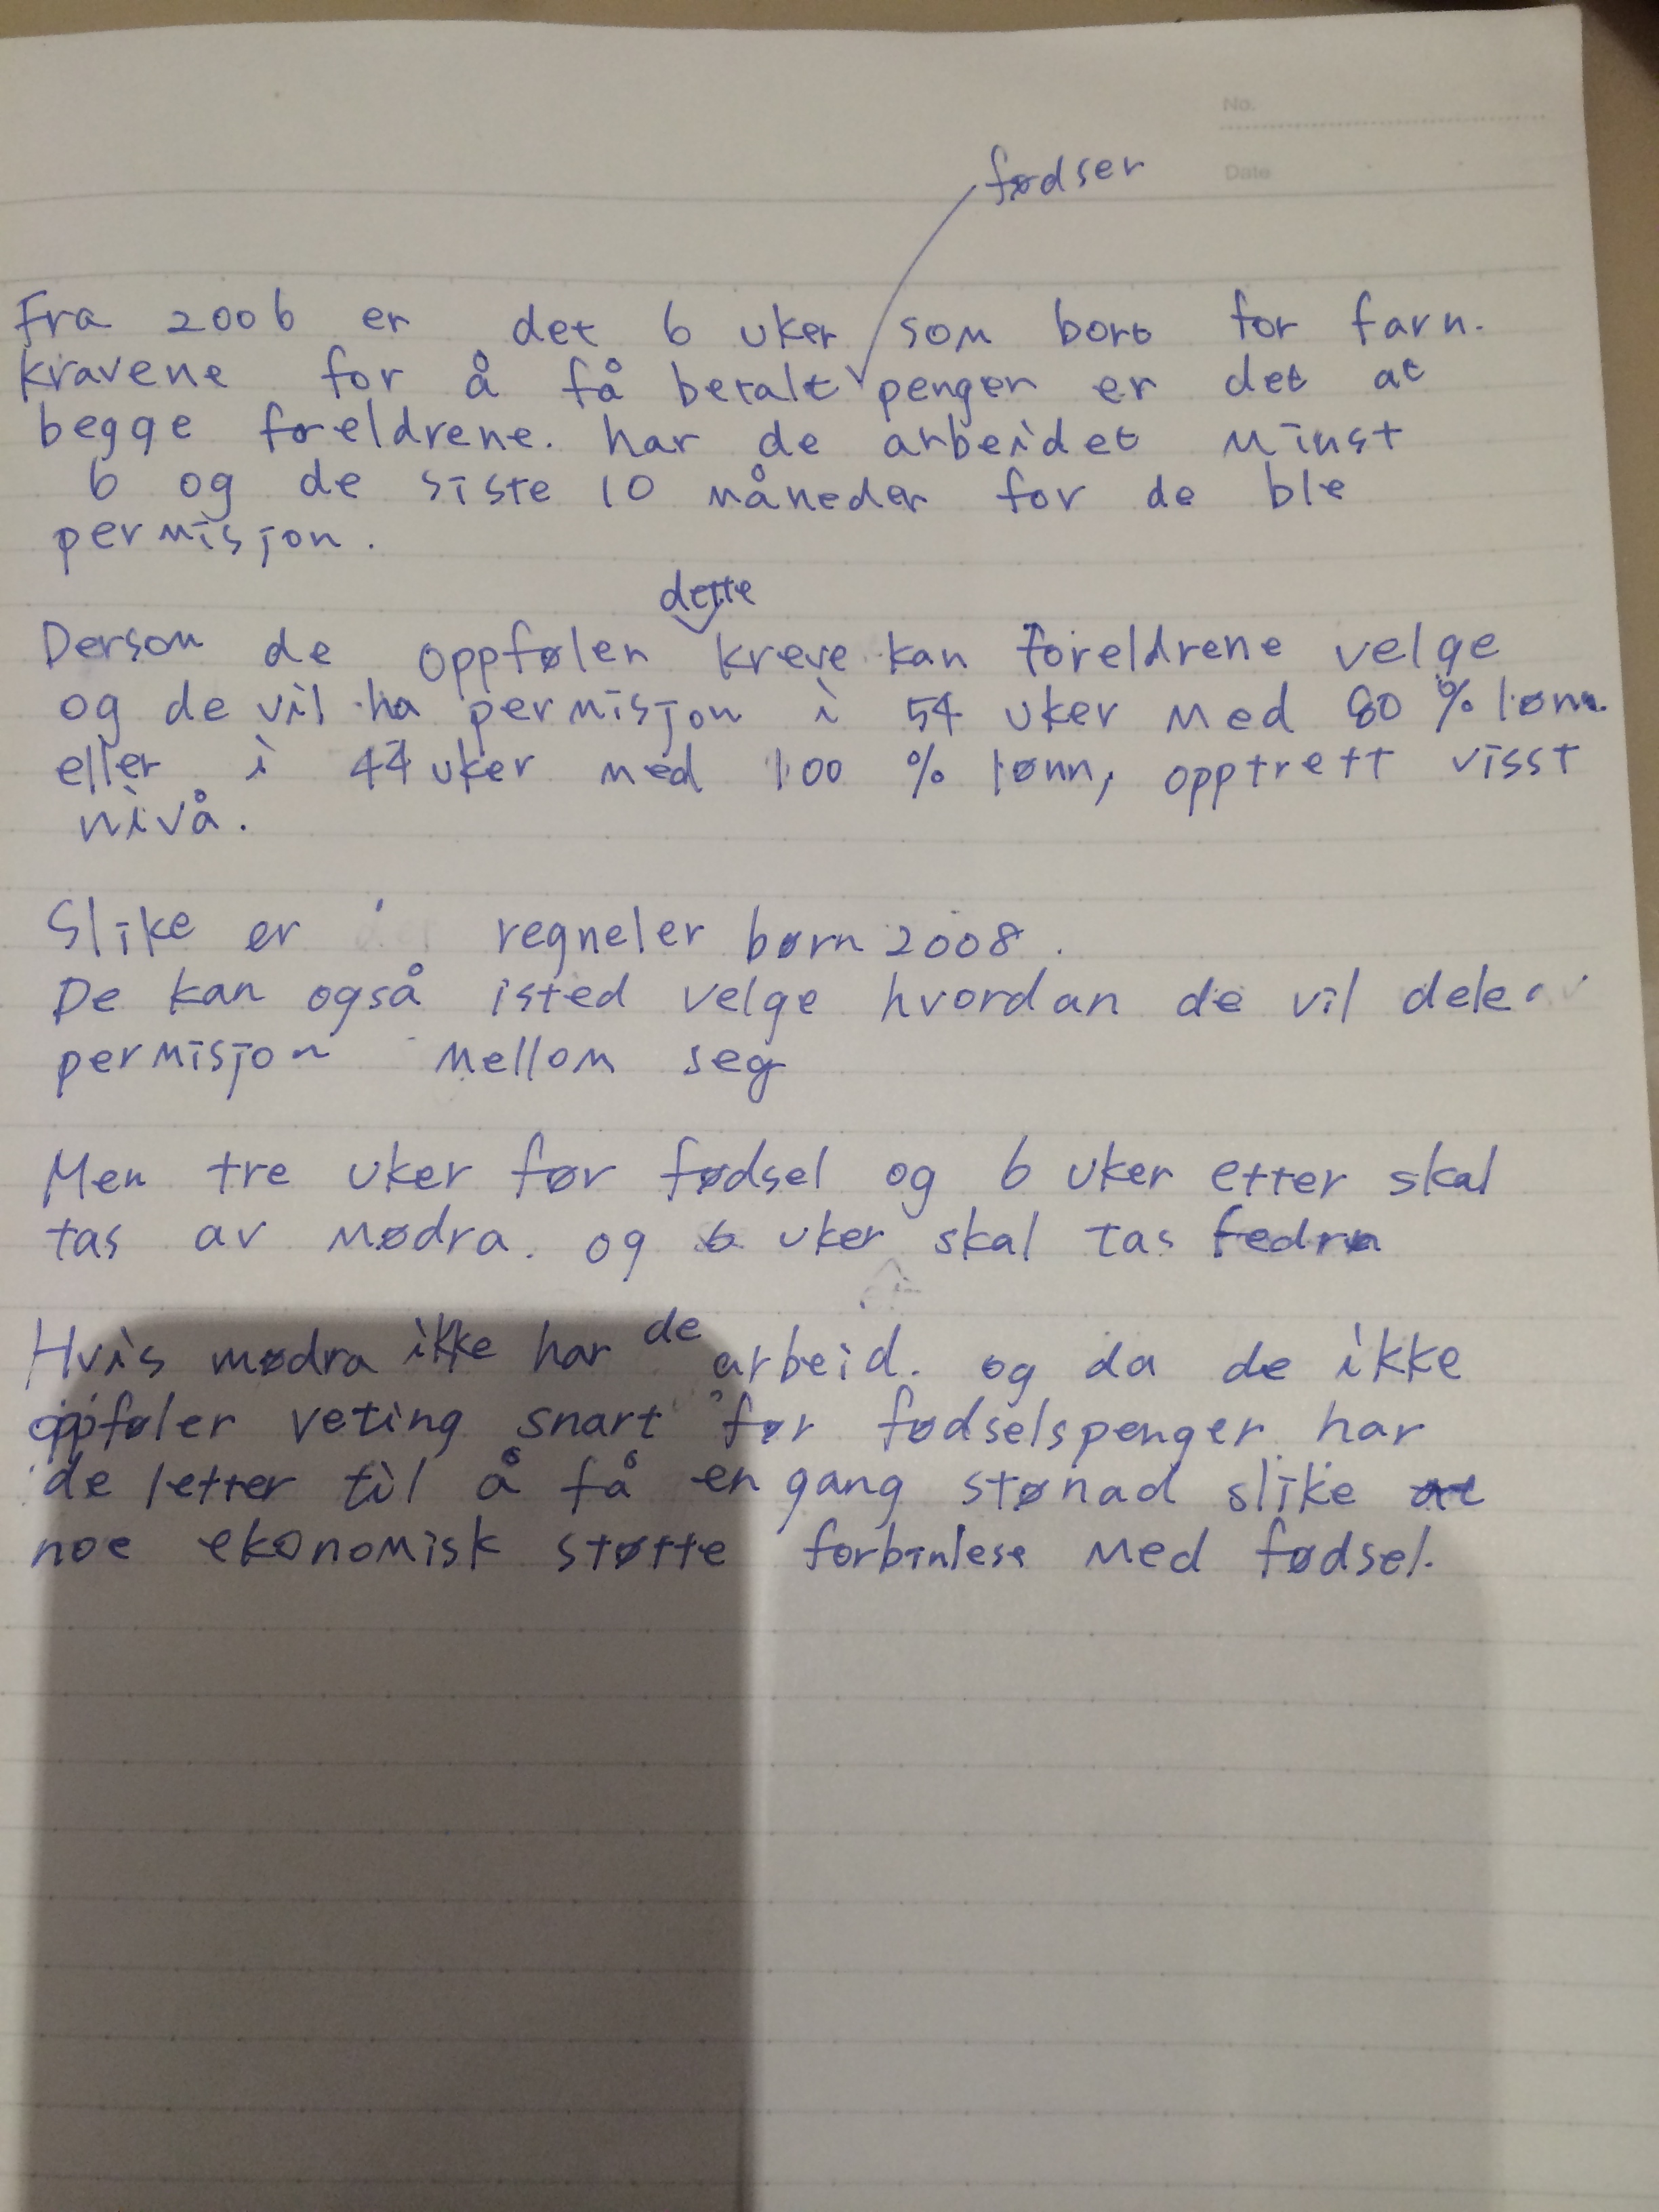 No.
Date
fødser
Fra 2006 er det 6 uker som bort for farn.
kravene for å få betalt penger er det at
begge foreldrene. har de arbeidet minst
6 og de siste 10 måneder for de ble
permisjon.
dette
Dersom de oppføler kreve kan foreldrene velge
og de vil ha permisjon i 54 uker med 80 % lønn.
eller i 44 uker med 100 % lønn, opptrett visst
nivå.
Slike er regneler børn 2008.
De kan også isted velge hvordan de vil dele
permisjon mellom seg
Men tre uker før fødsel og 6 uker etter skal
tas av mødra. og 6 uker skal tas fedra
Hvis mødra ikke har de arbeid. og da de ikke
oppføler veting snart før fødselspenger har
de letter til å få en gang stønad slike at
noe ekonomisk støtte forbinlese med fødsel.